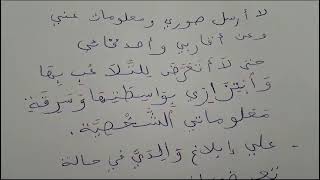 لا أرسل صوري ومعلومات عني
وعن أقاربي وأصدقائي
حتى لا أتعرض للتلاعب بها
وابتزازي بواسطتها وسرقة
معلوماتي الشخصية.
- علي إبلاغ والديَّ في حالة